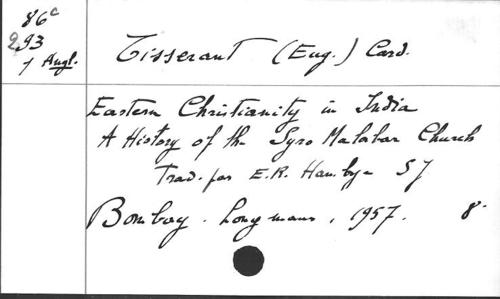 86c
293
7 Angl.
Tisserant (Eug.) Card.
Eastern Christianity in India
A History of the Syro Malabar Church
Trad. par E.R. Hambye SJ
Bombay. Longmans, 1957. 8°